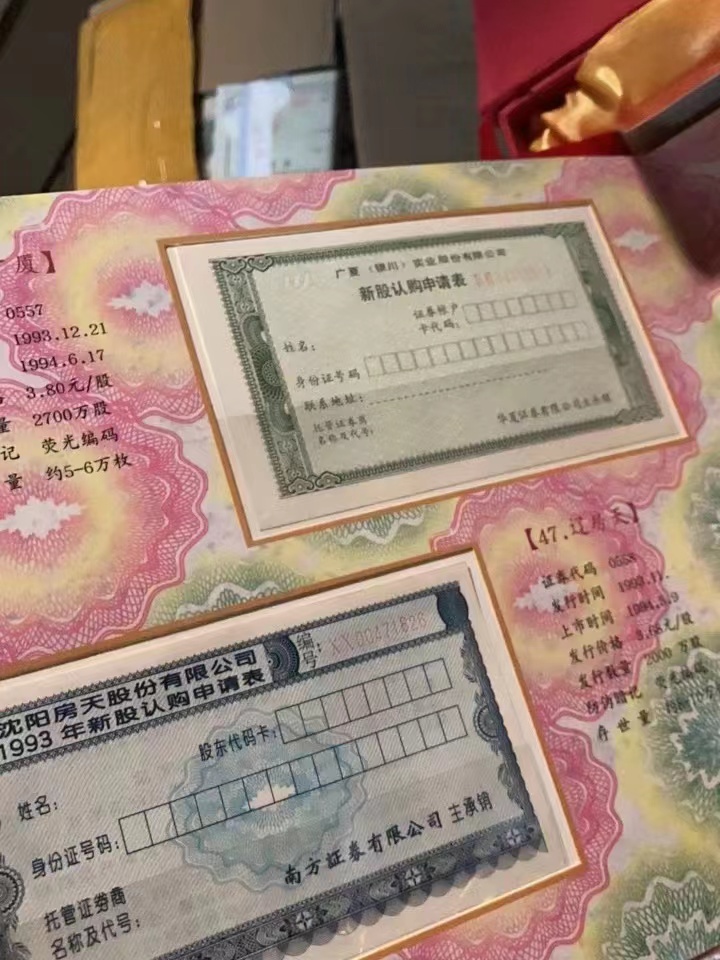 厦】
0557
1993.12.21
1994.6.17
3.80元/股
量 2700万股
记 荧光编码
量 约5-6万枚
广厦（银川）实业股份有限公司
新股认购申请表
证券帐户
卡代码：
姓名：
身份证号码
联系地址：
托管证券商
名称及代号：
华夏证券有限公司主承销
【47.辽房天】
证券代码 0558
发行时间 1993.11.
上市时间 1994.5.9
发行价格 3.65元/股
发行数量 2000 万股
防伪暗记 荧光编码
存世量
沈阳房天股份有限公司
1993 年新股认购申请表
编号：XX00471626
股东代码卡：
姓名：
身份证号码：
南方证券有限公司 主承销
托管证券商
名称及代号：